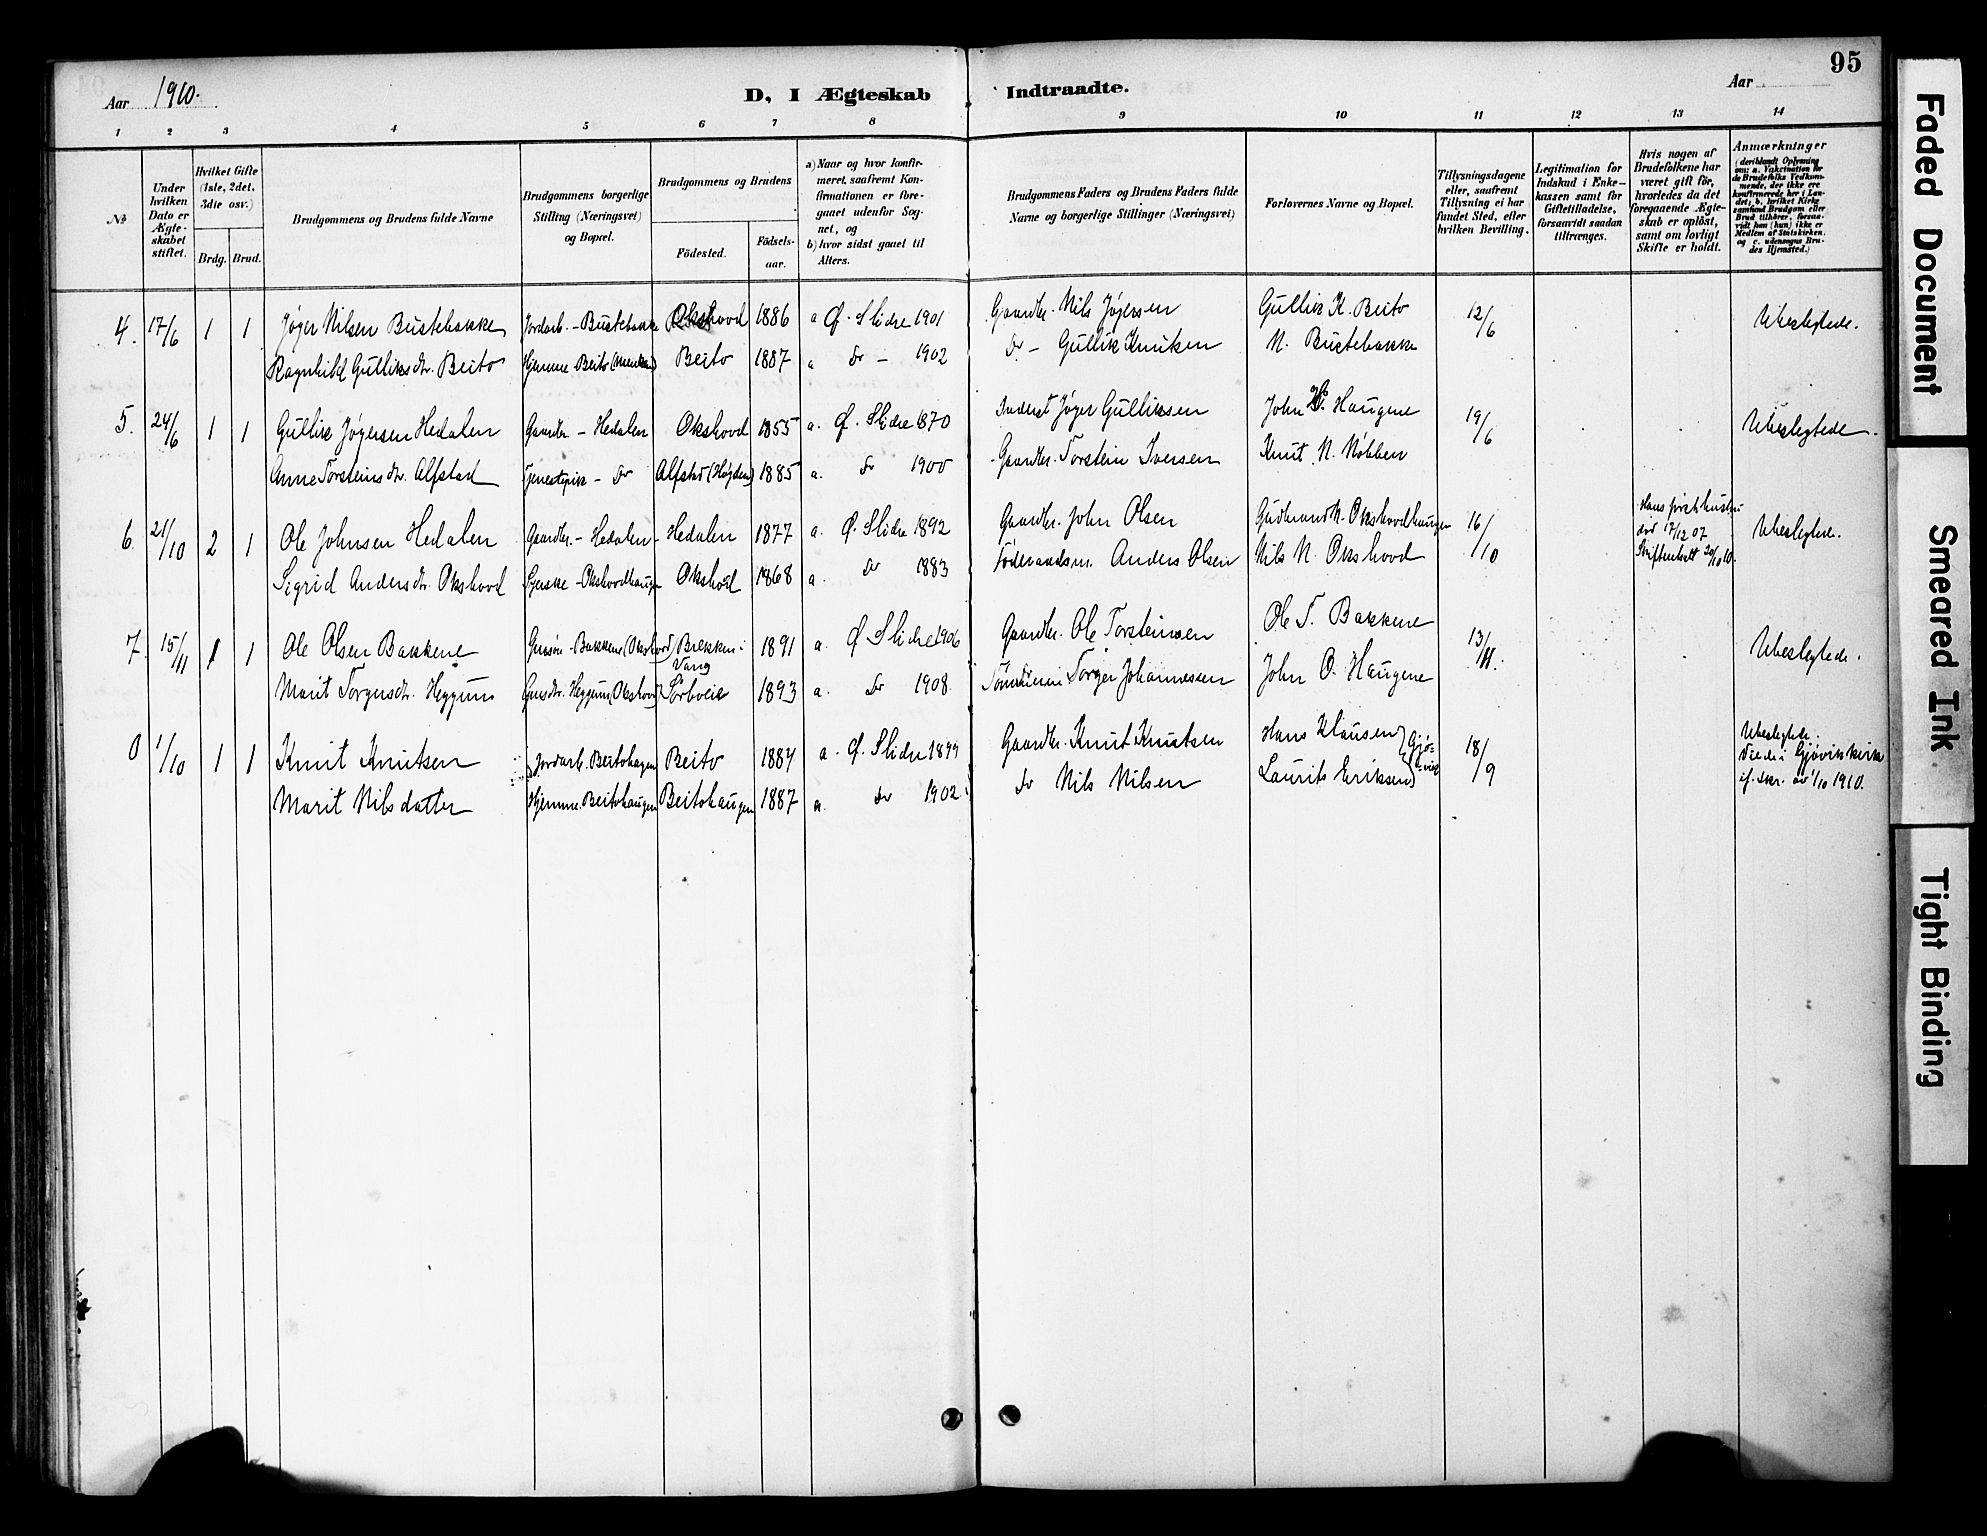 95
Aar 1910.
D, I Ægteskab Indtraadte.
Aar
1 2 3 4 5 6 7 8 9 10 11 12 13 14
№
Under hvilken Dato er Ægte-skabet stiftet.
Hvilket Gifte (1ste, 2det, 3die osv.)
Brdg. Brud.
Brudgommens og Brudens fulde Navne
Brudgommens borgerlige Stilling (Næringsvei) og Bopæl.
Brudgommens og Brudens
Födested. Födsels-aar.
a) Naar og hvor konfir-meret, saafremt Kon-firmationen er fore-gaaet udenfor Sog-net, og
b) hvor sidst gaaet til Alters.
Brudgommens Faders og Brudens Faders fulde Navne og borgerlige Stillinger (Næringsvei)
Forlovernes Navne og Bopæl.
Tillysningsdagene eller, saafremt Tillysning ei har fundet Sted, efter hvilken Bevilling.
Legitimation for Indskud i Enke-kassen samt for Giftetilladelse, forsaavidt saadan tiltrænges.
Hvis nogen af Brudefolkene har været gift för, hvorledes da det foregaaende Ægte-skab er oplöst, samt om lovligt Skifte er holdt.
Anmærkninger (deriblandt Oplysning om: a. Vakcination for de Brudefolks Vedkom-mende, der ikke ere konfirmerede her i Lan-det; b. hvilket Kirke-samfund Brudgom eller Brud tilhörer, forsaa-vidt han (hun) ikke er Medlem af Statskirken, og c. udensogns Bru-des Hjemsted.)
4. 17/6 1 1 Jøger Nilsen Bustebakke Jordarb. - Bustebakke Okshovd 1886 a Ø. Slidre 1901 Gaardbr. Nils Jøgersen Gullik K. Beito 12/6 Ubeslegtede.
Ragnhild Gulliksdtr. Beito Hjemme - Beito Beito 1887 a Do - 1902 Do - Gullik Knutsen N. Bustebakke
5. 24/6 1 1 Gullik Jøgersen Hedalen Gaardbr. - Hedalen Okshovd 1855 a. Ø. Slidre 1870 Inderst Jøger Gulliksen John Haugene 19/6 Ubeslegtede.
Anne Torsteinsdtr. Alfstad Tjenestepik - Do Alfstad (Høyden) 1885 a. Do 1900 Gaardbr. Torstein Iversen Knut N. Nøbben
6. 21/10 2 1 Ole Johnsen Hedalen Gaardbr. - Hedalen - Hedalen 1877 a. Ø. Slidre 1892 Gaardbr. John Olsen Gudbrand N. Okshovdhaugen 16/10 Hans første hustru død 17/12 07 Skifteholdt 20/10 10. Ubeslegtede.
Sigrid Andersdtr. Okshovd Syerske - Okshovdhaugen Okshovd 1868 a. Do 1883 Föderaadsm. Anders Olsen Nils N. Okshovd
7. 15/11 1 1 Ole Olsen Bakkene Grsøn - Bakkene (Okshovd) Brekken i Vang 1891 a. Ø Slidre 1906 Gaardbr. Ole Torsteinsen Ole T. Bakkene 13/11. Ubeslegtede.
Marit Torgersdtr. Heggum Heggum (Okshovd) Sörtveit 1893 a. Do 1908. Torger Johannesen John O. Haugene
0 1/10 1 1 Knut Knutsen Jordarb. Beitohagen Beito 1884 a. Ø. Slidre 1899 Gaardbr. Knut Knutsen Hans Klausen } Gjø-vik 18/9 Ubeslegtede. Viede i Gjøvik kirke if. skr. av 1/10 1910.
Marit Nilsdatter Hjemme. Beitohaugen Beitohaugen 1887 a. Do 1902. Do Nils Nilsen Laurits Eriksen }
Faded Document
Smeared Ink
Tight Binding